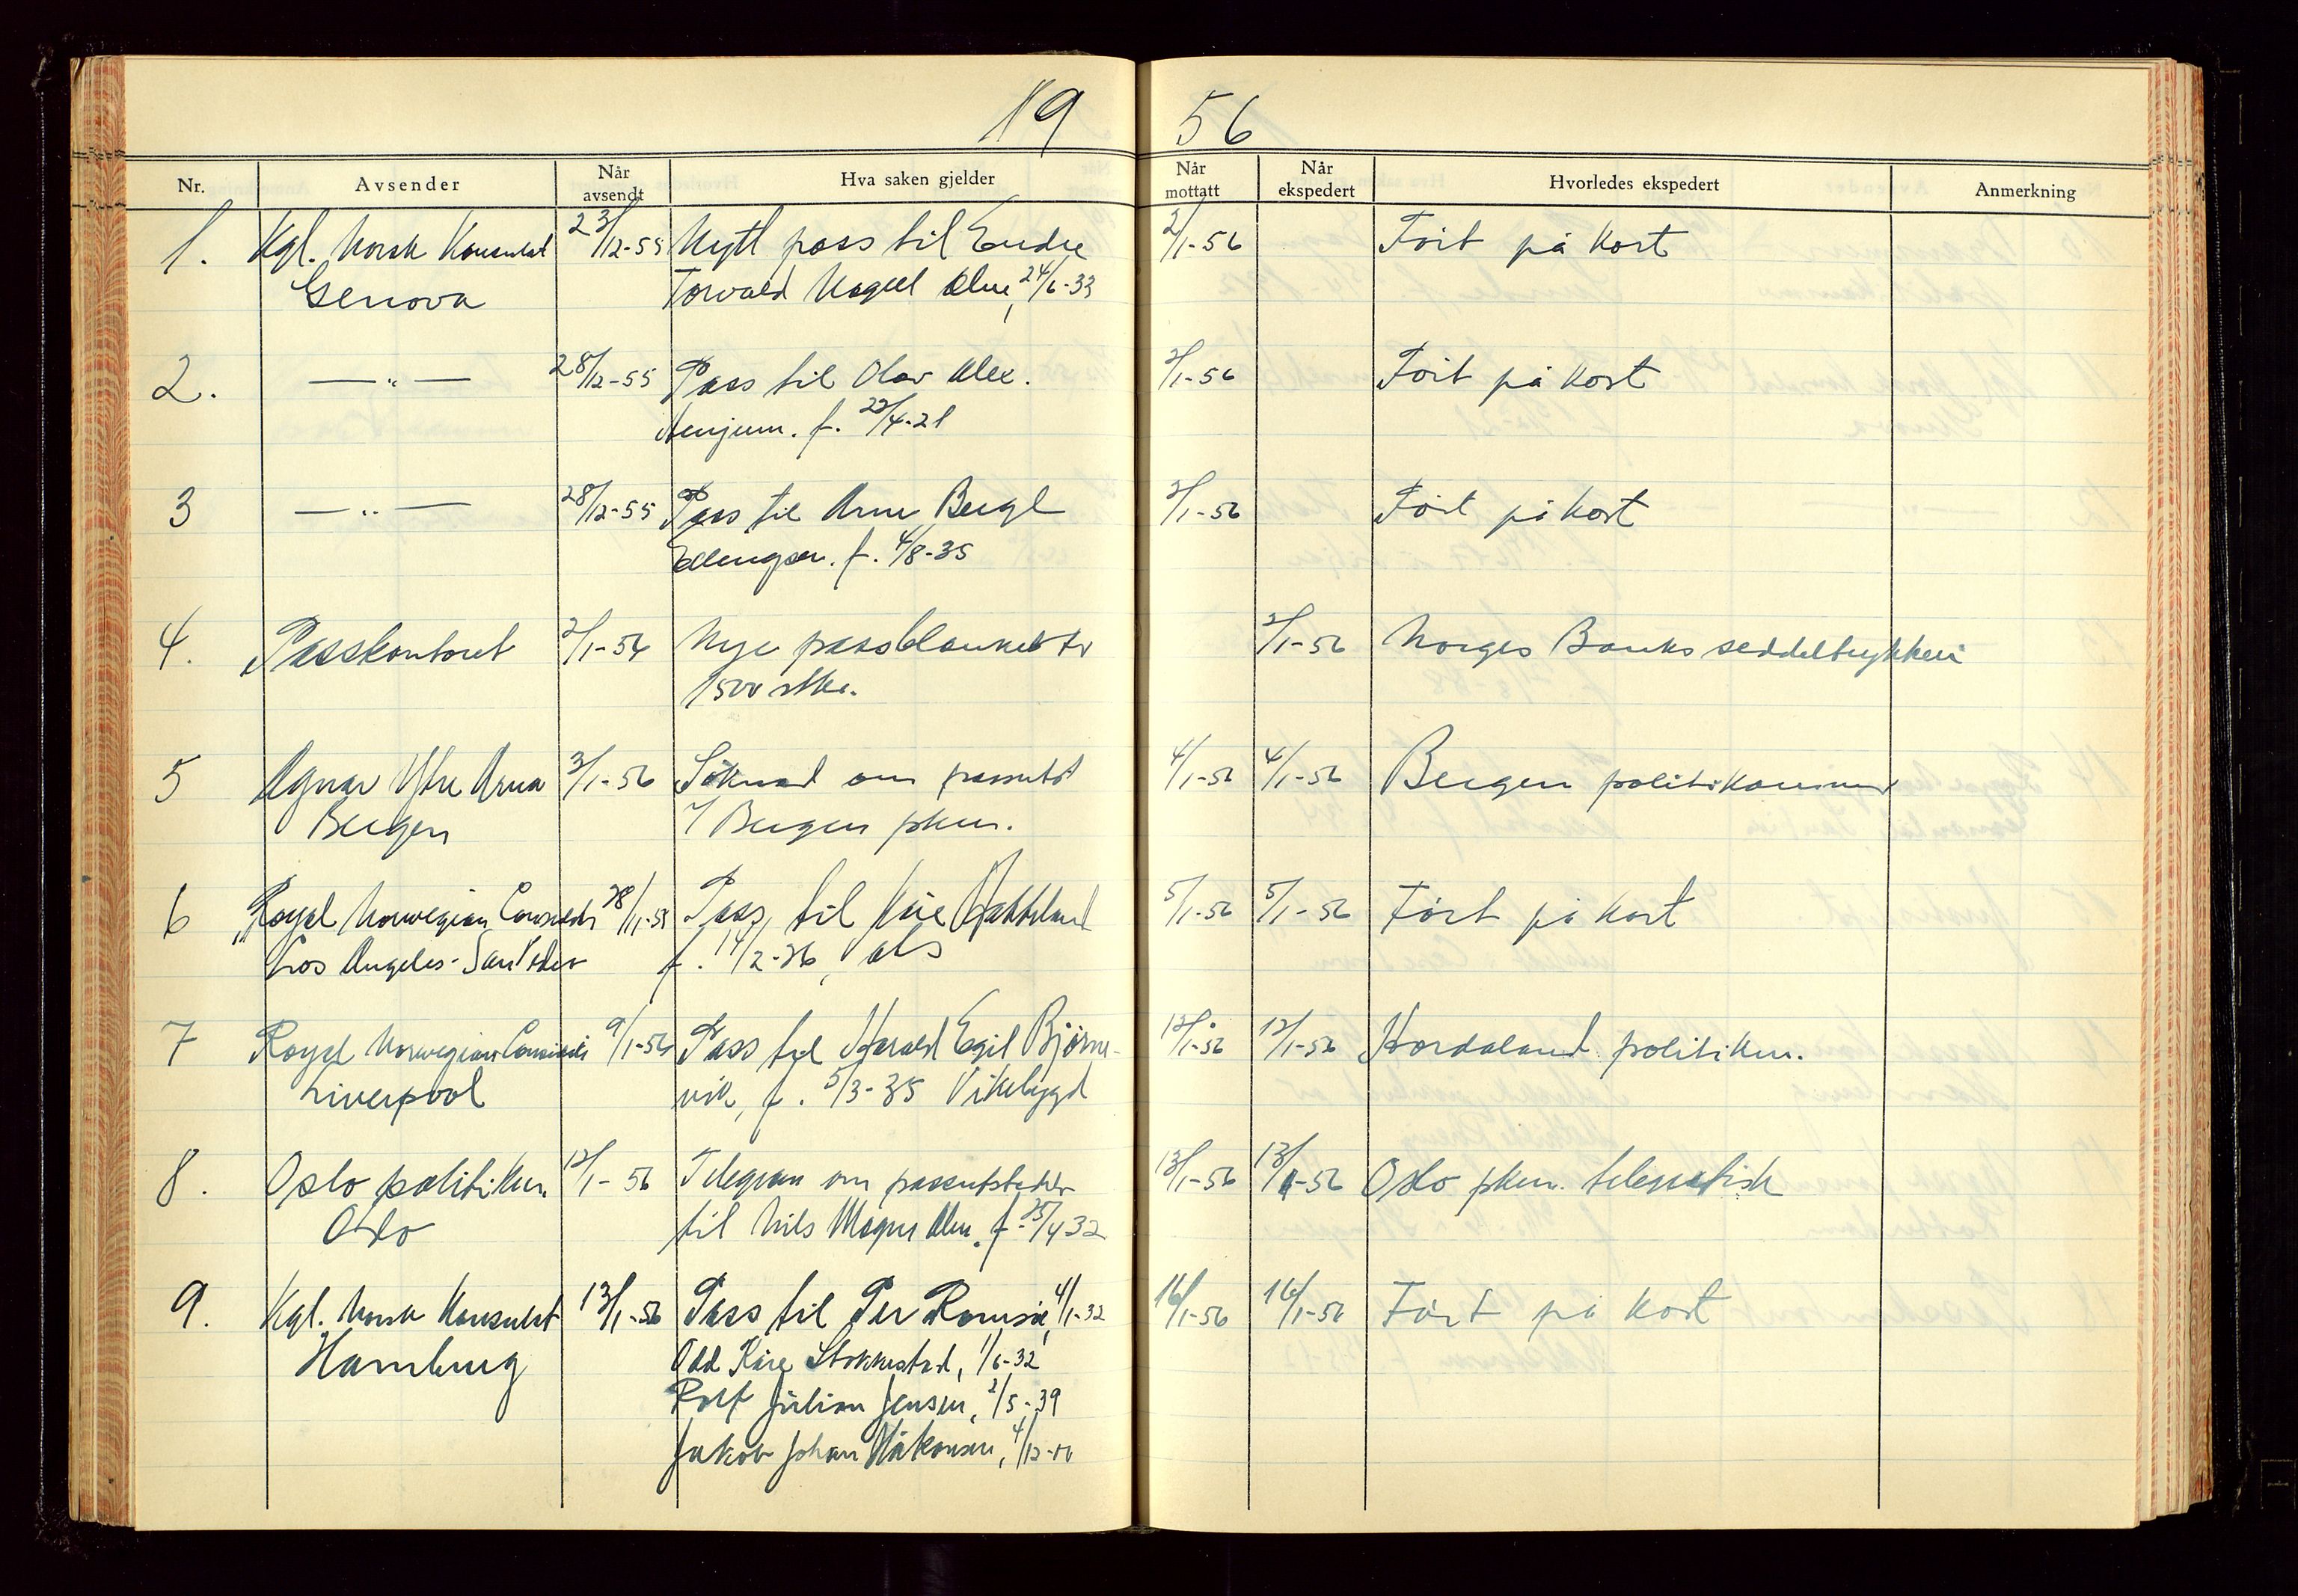 19 56
Nr. Avsender Når avsendt Hva saken gjelder Når mottatt Når ekspedert Hvorledes ekspedert Anmerkning
1. Kgl. Norsk Konsulat 23/12-55 Nytt pass til Endre 2/1-56 Ført på kort
Genova Torvald Alne, 24/6-33
2. —„— 28/12-55 Pass til Olav Alex. 2/1-56 Ført på kort
Henjum. f. 22/4-21
3 —„— 28/12-55 Pass til Arne Bergl 2/1-56 Ført på kort
Ellingsen. f. 4/8-35
4. Passkontoret 2/1-56 Nye passblanketter 2/1-56 Norges Banks seddeltrykkeri
1500 stkr.
5 Agnar Ytre Arna 3/1-56 Søknad om passutst 4/1-56 4/1-56 Bergen politikammer
Bergen v/ Bergen pkm.
6 Royal Norwegian Consulate 28/11-55 Pass til Kåre 5/1-56 5/1-56 Ført på kort
Los Angeles - San Pedro f. 14/2-36,
7 Royal Norwegian Consulate 9/1-56 Pass til Harald Egil Bjørn- 12/1-56 12/1-56 Hordaland politikm.
Liverpool vik, f. 5/3-35 Vikebygd
8. Oslo politikm. 12/1-56 Telegram om passutstedelse 13/1-56 13/1-56 Oslo pkm. telegrafisk
Oslo til Nils Magne Alne. f. 25/4 32
9. Kgl. Norsk Konsulat 13/1-56 Pass til Per 4/1-32 16/1-56 16/1-56 Ført på kort
Hamburg Odd Kåre Stokkestad, 1/6-32
Rolf Julian Jensen, 2/5-39
Jakob Johan Håkonsen, 4/12-00